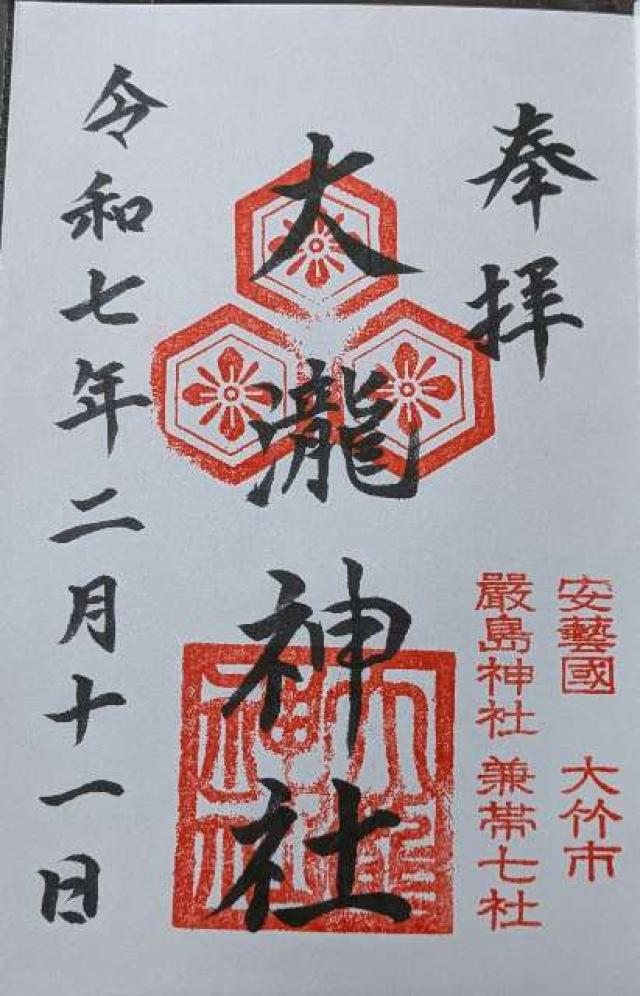 奉拝
安藝國 大竹市
嚴島神社 兼帯七社
大瀧神社
大瀧神社
令和七年二月十一日